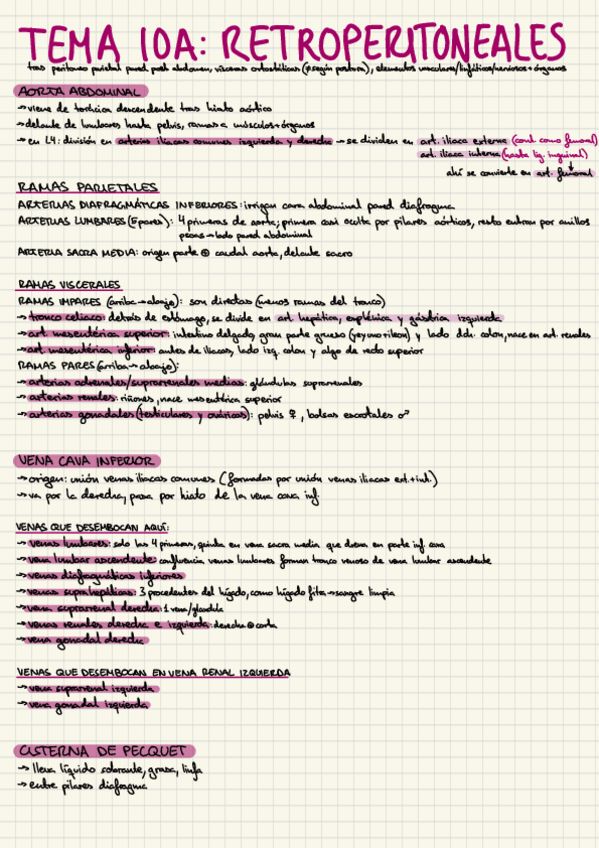 TEMA 10A: RETROPERITONEALES
tras peritoneo parietal pared post. abdomen, vísceras ortostáticas (≠según postura), elementos vasculares/linfáticos/nerviosos+órganos
AORTA ABDOMINAL
→ viene de torácica descendente tras hiato aórtico
→ delante de lumbares hasta pelvis, ramas a músculos+órganos
→ en L4: división en arterias ilíacas comunes izquierda y derecha → se dividen en art. ilíaca externa (cont. como femoral)
art. ilíaca interna (hasta lig. inguinal)
ahí se convierte en art. femoral
RAMAS PARIETALES
ARTERIAS DIAFRAGMÁTICAS INFERIORES: irrigan cara abdominal pared diafragma
ARTERIAS LUMBARES (5 pares): 4 primeras de aorta; primera casi oculta por pilares aórticos, resto entran por anillos
psoas → lado pared abdominal
ARTERIA SACRA MEDIA: origen parte ⊕ caudal aorta, delante sacro
RAMAS VISCERALES
RAMAS IMPARES (arriba → abajo): son directas (menos ramas del tronco)
→ tronco celiaco: detrás de estómago, se divide en art. hepática, esplénica y gástrica izquierda
→ art. mesentérica superior: intestino delgado, gran parte grueso (yeyuno+íleon) y lado dch. colon, nace en art. renales
→ art. mesentérica inferior: antes de ilíacas, lado izq. colon y algo de recto superior
RAMAS PARES (arriba → abajo):
→ arterias adrenales/suprarrenales medias: glándulas suprarrenales
→ arterias renales: riñones, nace mesentérica superior
→ arterias gonadales (testiculares y ováricas): pelvis ♀, bolsas escrotales ♂
VENA CAVA INFERIOR
→ origen: unión venas ilíacas comunes (formadas por unión venas ilíacas ext.+int.)
→ va por la derecha, pasa por hiato de la vena cava inf.
VENAS QUE DESEMBOCAN AQUÍ:
→ venas lumbares: solo las 4 primeras, quinta en vena sacra media que drena en parte inf. cava
→ vena lumbar ascendente: confluencia venas lumbares forman tronco venoso de vena lumbar ascendente
→ venas diafragmáticas inferiores
→ venas suprahepáticas: 3 procedentes del hígado, como hígado filtra → sangre limpia
→ vena suprarrenal derecha: 1 vena/glándula
→ venas renales derecha e izquierda: derecha ⊕ corta
→ vena gonadal derecha
VENAS QUE DESEMBOCAN EN VENA RENAL IZQUIERDA
→ vena suprarrenal izquierda
→ vena gonadal izquierda
CISTERNA DE PECQUET
→ lleva líquido sobrante, grasa, linfa
→ entre pilares diafragma